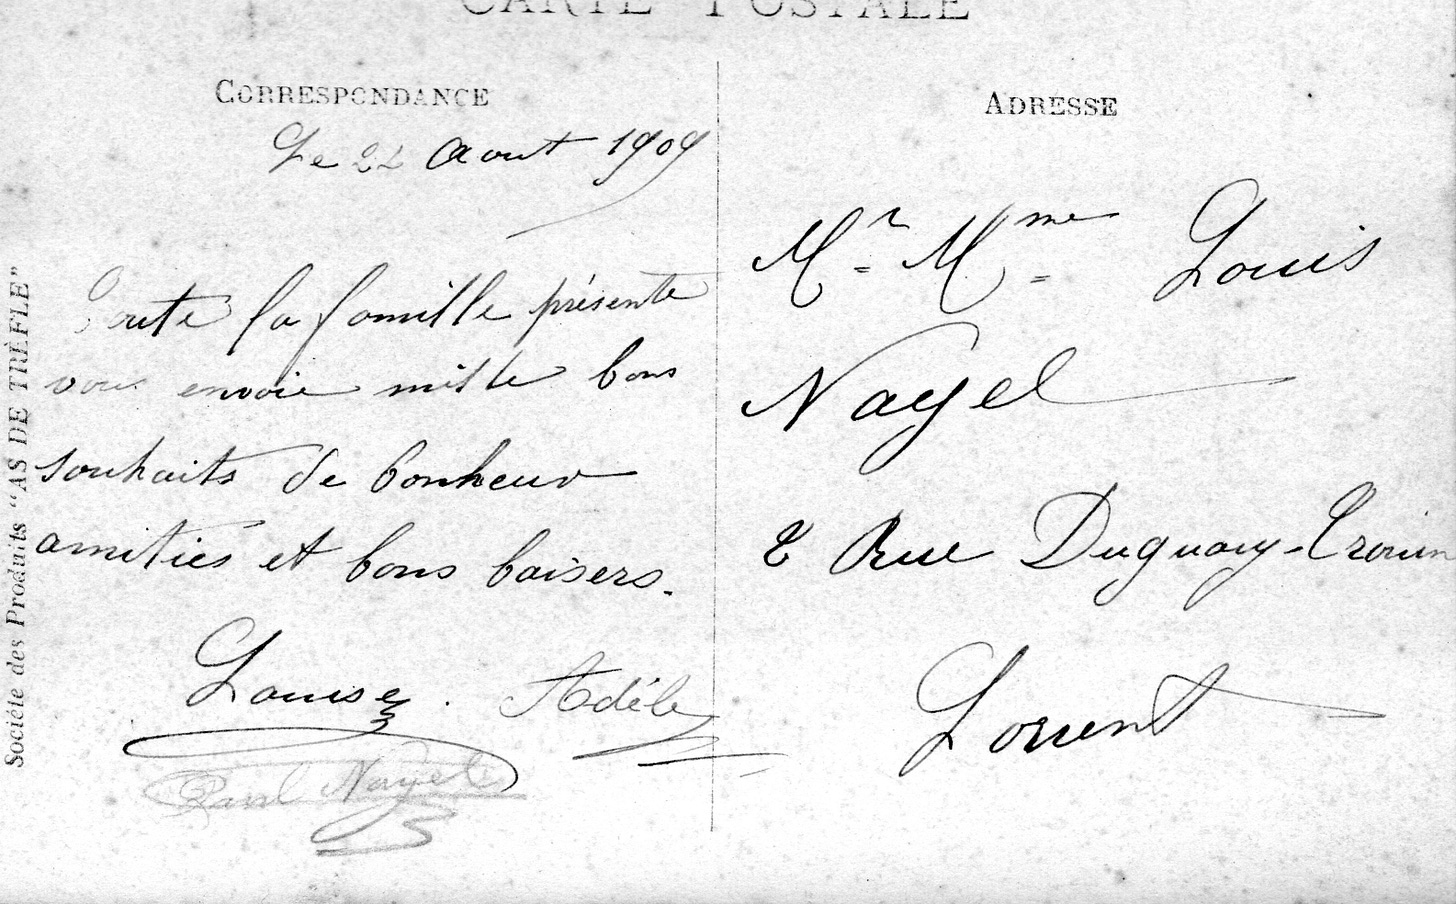 CARTE POSTALE
CORRESPONDANCE
Le 22 Aout 1909
Toute la famille présente
vous envoie mille bons
souhaits de bonheur
amitiés et bons baisers.
Louise. Adèle
Paul Nayel
ADRESSE
Mr Mme Louis
Nayel
2 Rue Duguay-Trouin
Lorient
Société des Produits "AS DE TRÈFLE"